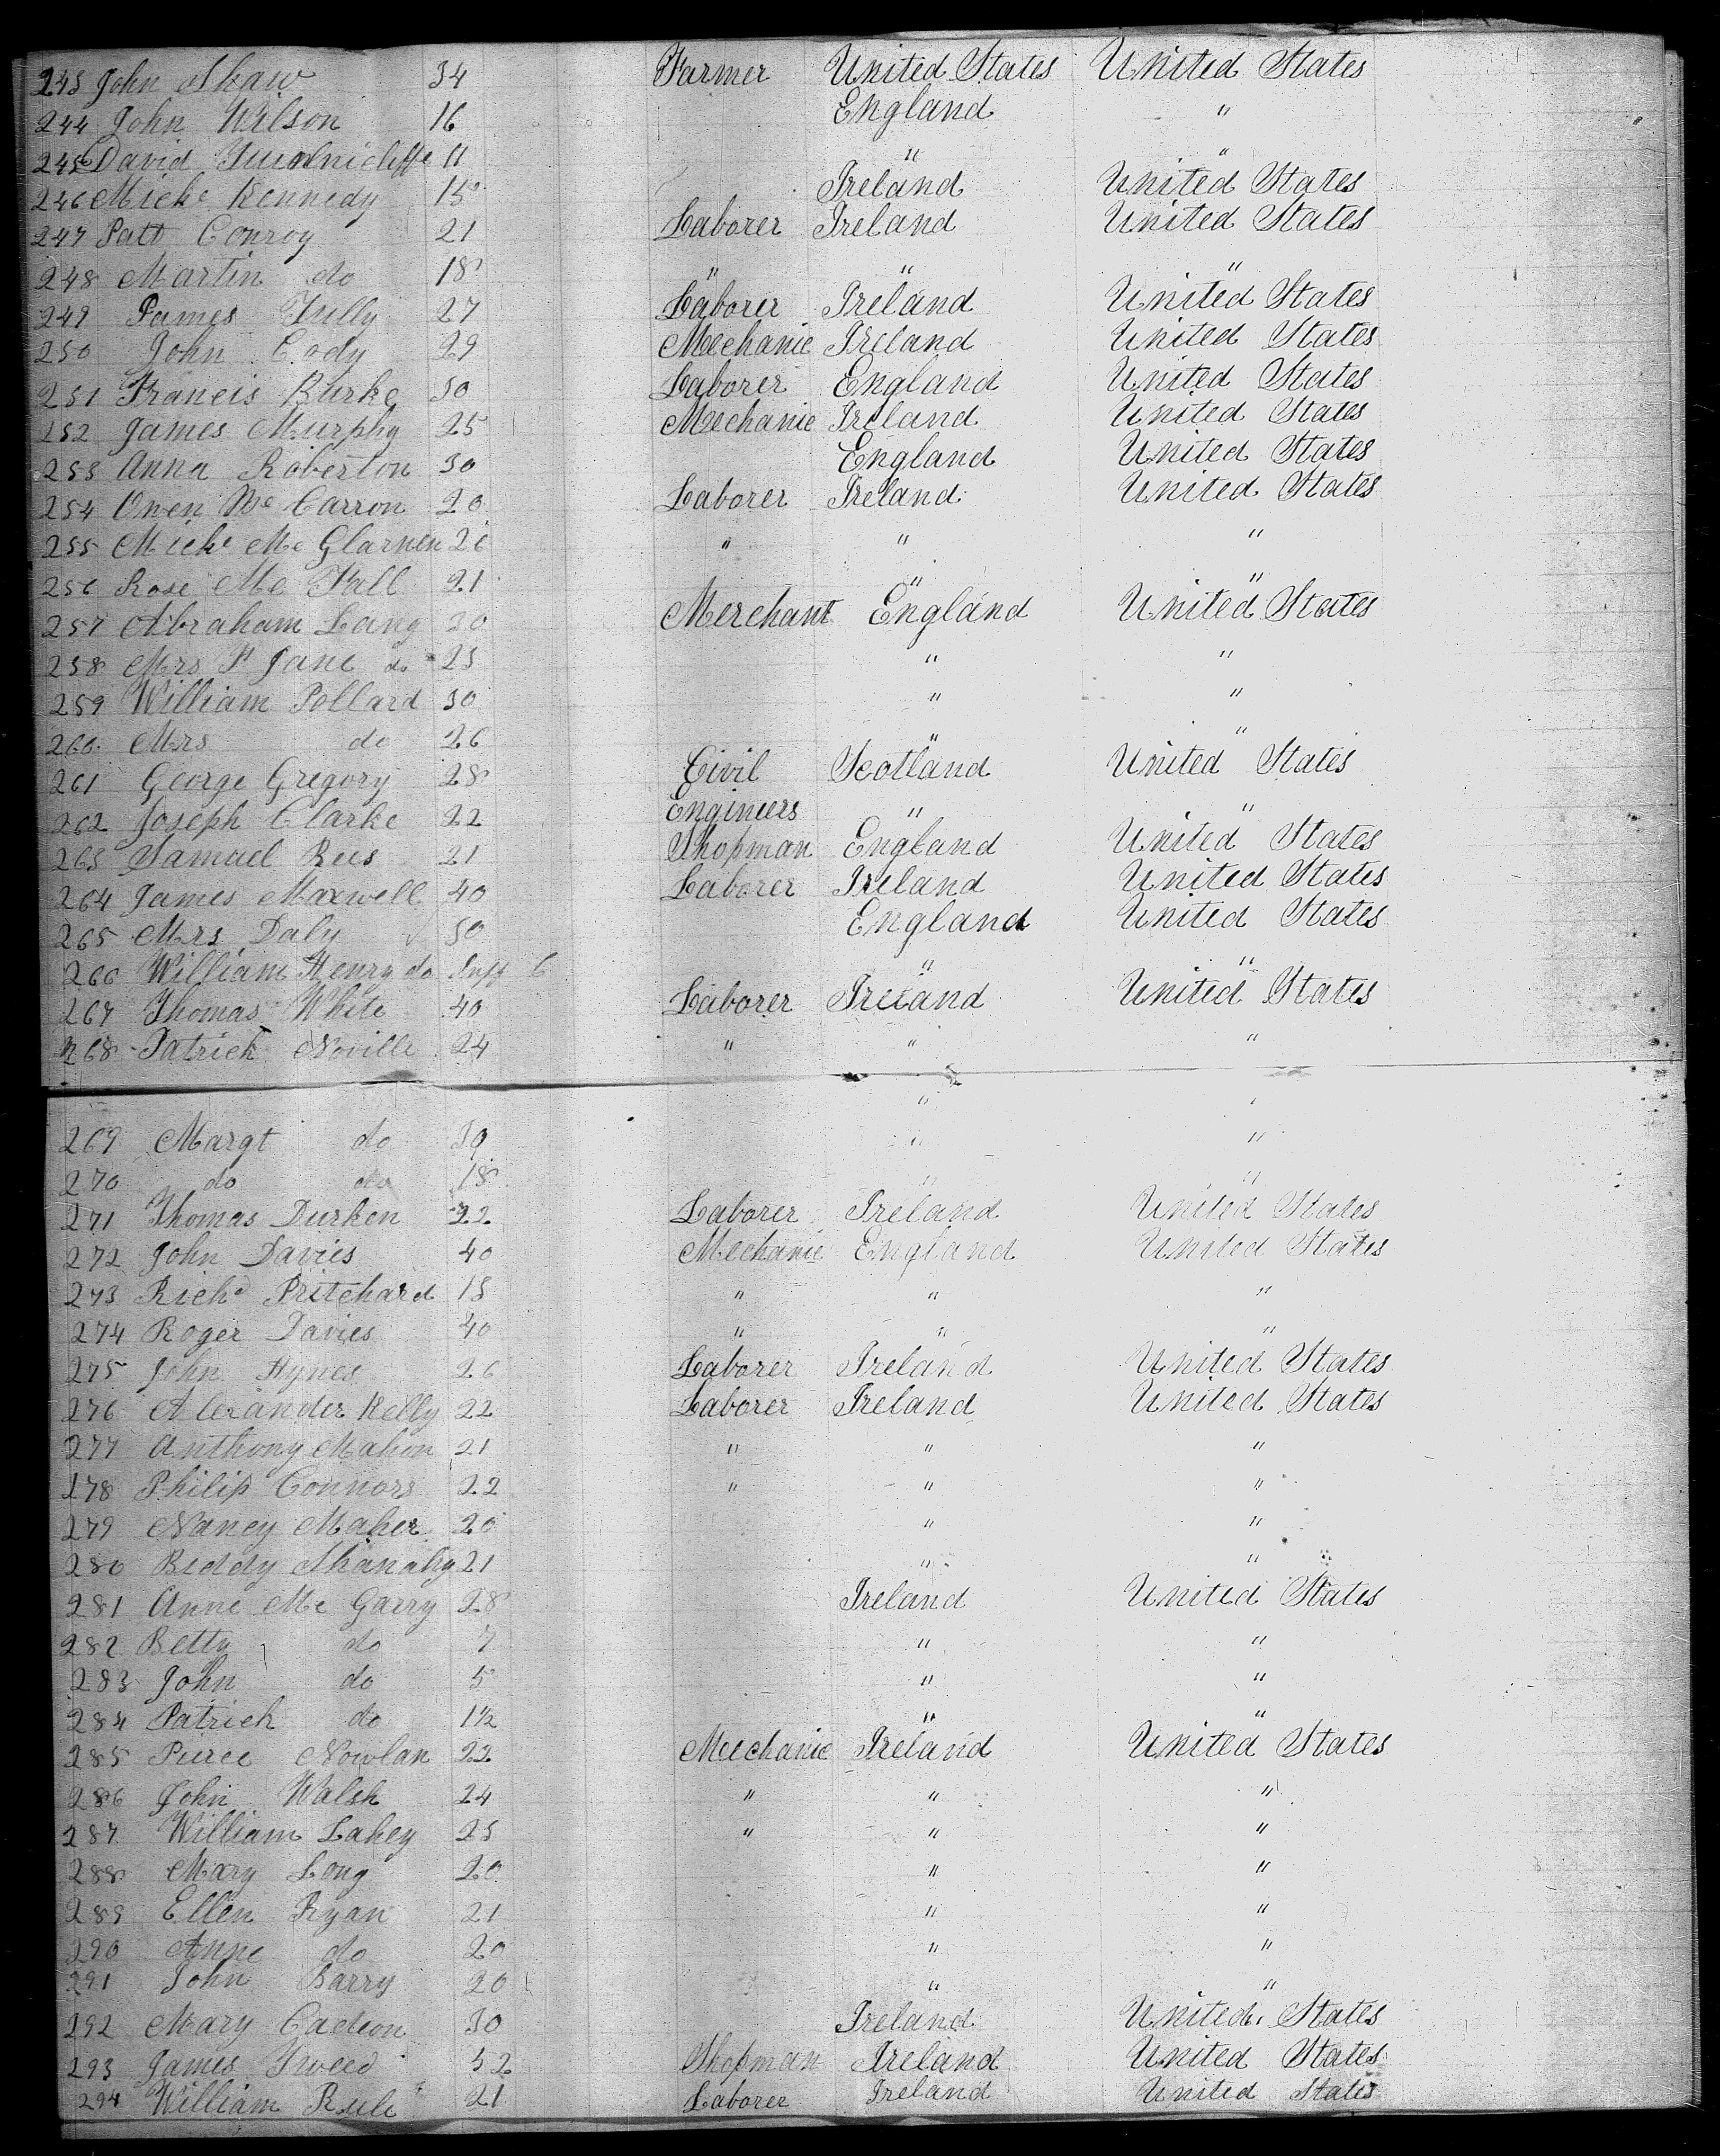 243 John Shaw 34 Farmer United States United States
244 John Wilson 16 England "
245 David Turnnicliffe 11 " "
246 Michl Kennedy 15 Ireland United States
247 Patt Conroy 21 Laborer Ireland United States
248 Martin do 18 " " "
249 James Tully 27 Laborer Ireland United States
250 John Cody 29 Mechanic Ireland United States
251 Francis Burke 30 Laborer England United States
252 James Murphy 25 Mechanic Ireland United States
253 Anna Roberton 30 England United States
254 Owen Mc Carron 20 Laborer Ireland United States
255 Michl Mc Glarnen 26 " " "
256 Rose Mc Fall 21 " "
257 Abraham Lang 30 Merchant England United States
258 Mrs P Jane do 25 " "
259 William Pollard 30 " "
260 Mrs do 26 " "
261 George Gregory 28 Civil Scotland United States
262 Joseph Clarke 22 Engineers " "
263 Samuel Rees 21 Shopman England United States
264 James Maxwell 40 Laborer Ireland United States
265 Mrs Daly 30 England United States
266 William Henry do Inft 6 " "
267 Thomas White 40 Laborer Ireland United States
268 Patrick Noville 24 " " "
" "
269 Margt do 30 " "
270 do do 18 " "
271 Thomas Durken 22 Laborer Ireland United States
272 John Davies 40 Mechanic England United States
273 Richd Pritchard 18 " " "
274 Roger Davies 40 " " "
275 John Hynes 26 Laborer Ireland United States
276 Alexander Kelly 22 Laborer Ireland United States
277 Anthony Mahon 21 " " "
178 Philip Connors 22 " " "
279 Nancy Maher 20 " "
280 Biddy Shanahy 21 " "
281 Anne Mc Garry 28 Ireland United States
282 Betty do 7 " "
283 John do 5 " "
284 Patrick do 1½ " "
285 Pierce Nowlan 22 Mechanic Ireland United States
286 John Walsh 24 " " "
287 William Lahey 25 " " "
288 Mary Long 20 " "
289 Ellen Ryan 21 " "
290 Anne do 20 " "
291 John Barry 20 " "
292 Mary Cadeon 30 Ireland United States
293 James Tweed 32 Shopman Ireland United States
294 William Rule 21 Laborer Ireland United States